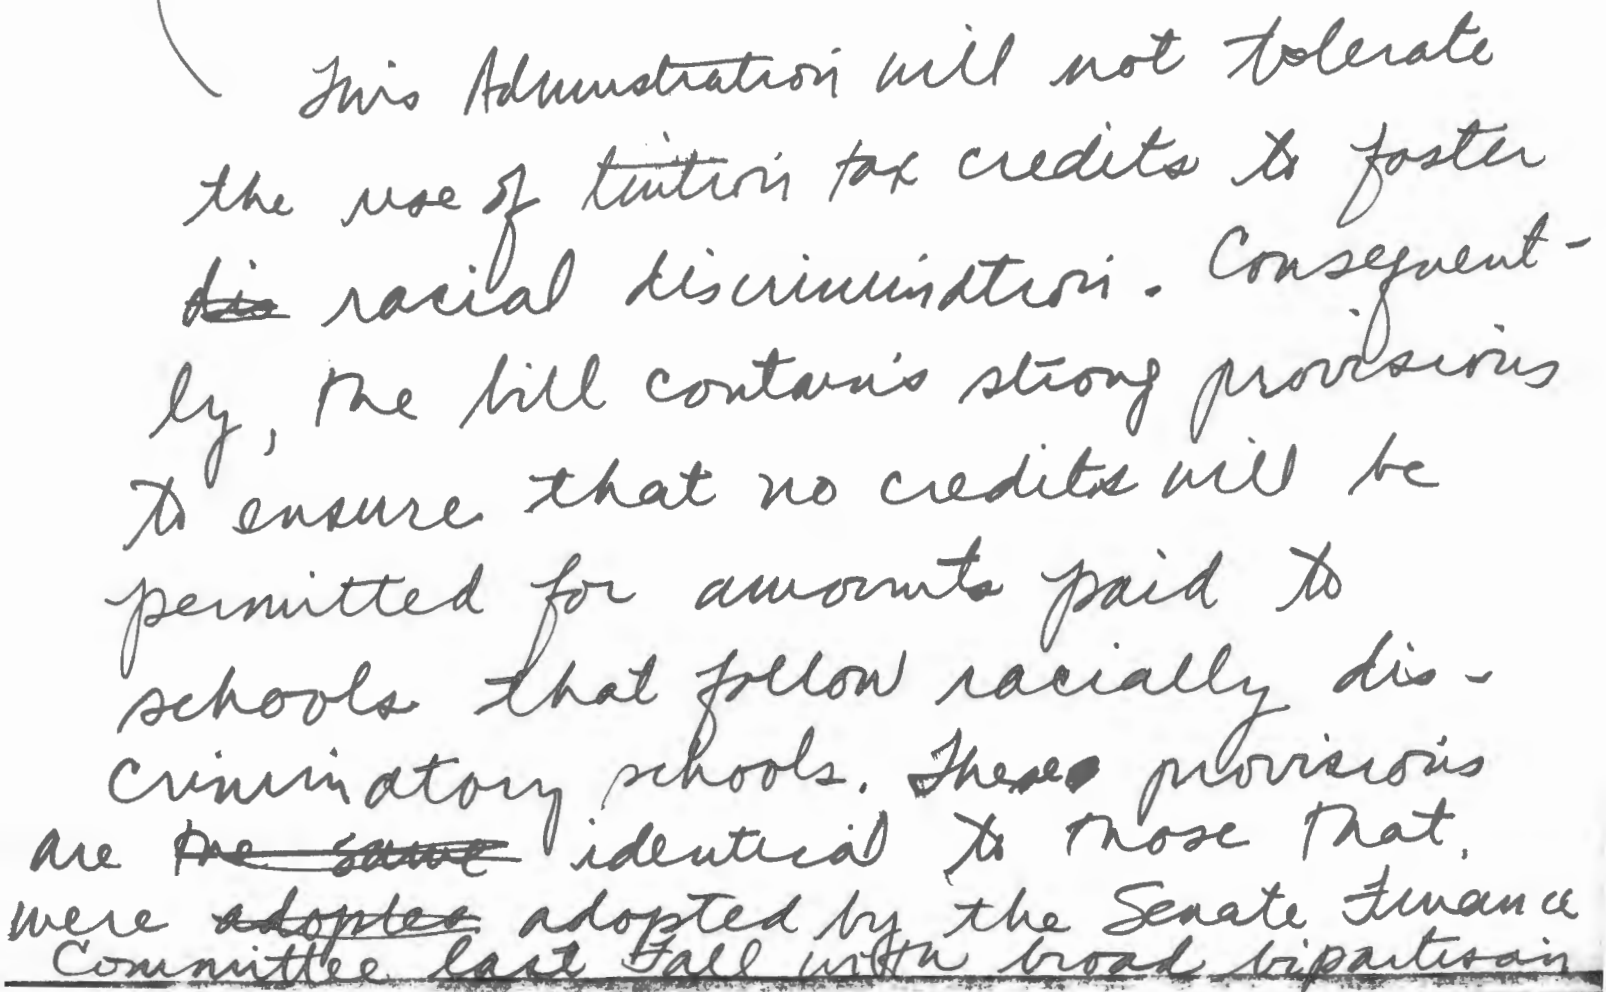 This Administration will not tolerate
the use of tuition tax credits to foster
dis racial discrimination. Consequent-
ly, the bill contains strong provisions
to ensure that no credits will be
permitted for amounts paid to
schools that follow racially dis-
criminatory schools. These provisions
are the same identical to those that
were adopted adopted by the Senate Finance
Committee last Fall with broad bipartisan